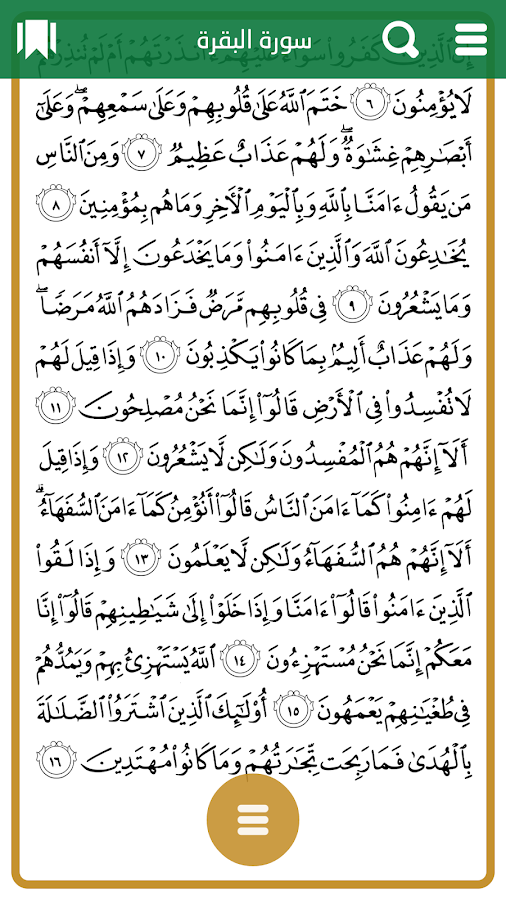 سورة البقرة
إِنَّ الَّذِينَ كَفَرُوا۟ سَوَآءٌ عَلَيْهِمْ ءَأَنذَرْتَهُمْ أَمْ لَمْ تُنذِرْهُمْ
لَا يُؤْمِنُونَ ٦ خَتَمَ ٱللَّهُ عَلَىٰ قُلُوبِهِمْ وَعَلَىٰ سَمْعِهِمْ ۖ وَعَلَىٰٓ
أَبْصَـٰرِهِمْ غِشَـٰوَةٌ ۖ وَلَهُمْ عَذَابٌ عَظِيمٌ ٧ وَمِنَ ٱلنَّاسِ
مَن يَقُولُ ءَامَنَّا بِٱللَّهِ وَبِٱلْيَوْمِ ٱلْـَٔاخِرِ وَمَا هُم بِمُؤْمِنِينَ ٨
يُخَـٰدِعُونَ ٱللَّهَ وَٱلَّذِينَ ءَامَنُوا۟ وَمَا يَخْدَعُونَ إِلَّآ أَنفُسَهُمْ
وَمَا يَشْعُرُونَ ٩ فِى قُلُوبِهِم مَّرَضٌ فَزَادَهُمُ ٱللَّهُ مَرَضًا ۖ
وَلَهُمْ عَذَابٌ أَلِيمٌۢ بِمَا كَانُوا۟ يَكْذِبُونَ ١٠ وَإِذَا قِيلَ لَهُمْ
لَا تُفْسِدُوا۟ فِى ٱلْأَرْضِ قَالُوٓا۟ إِنَّمَا نَحْنُ مُصْلِحُونَ ١١
أَلَآ إِنَّهُمْ هُمُ ٱلْمُفْسِدُونَ وَلَـٰكِن لَّا يَشْعُرُونَ ١٢ وَإِذَا قِيلَ
لَهُمْ ءَامِنُوا۟ كَمَآ ءَامَنَ ٱلنَّاسُ قَالُوٓا۟ أَنُؤْمِنُ كَمَآ ءَامَنَ ٱلسُّفَهَآءُ ۗ
أَلَآ إِنَّهُمْ هُمُ ٱلسُّفَهَآءُ وَلَـٰكِن لَّا يَعْلَمُونَ ١٣ وَإِذَا لَقُوا۟
ٱلَّذِينَ ءَامَنُوا۟ قَالُوٓا۟ ءَامَنَّا وَإِذَا خَلَوْا۟ إِلَىٰ شَيَـٰطِينِهِمْ قَالُوٓا۟ إِنَّا
مَعَكُمْ إِنَّمَا نَحْنُ مُسْتَهْزِءُونَ ١٤ ٱللَّهُ يَسْتَهْزِئُ بِهِمْ وَيَمُدُّهُمْ
فِى طُغْيَـٰنِهِمْ يَعْمَهُونَ ١٥ أُو۟لَـٰٓئِكَ ٱلَّذِينَ ٱشْتَرَوُا۟ ٱلضَّلَـٰلَةَ
بِٱلْهُدَىٰ فَمَا رَبِحَت تِّجَـٰرَتُهُمْ وَمَا كَانُوا۟ مُهْتَدِينَ ١٦